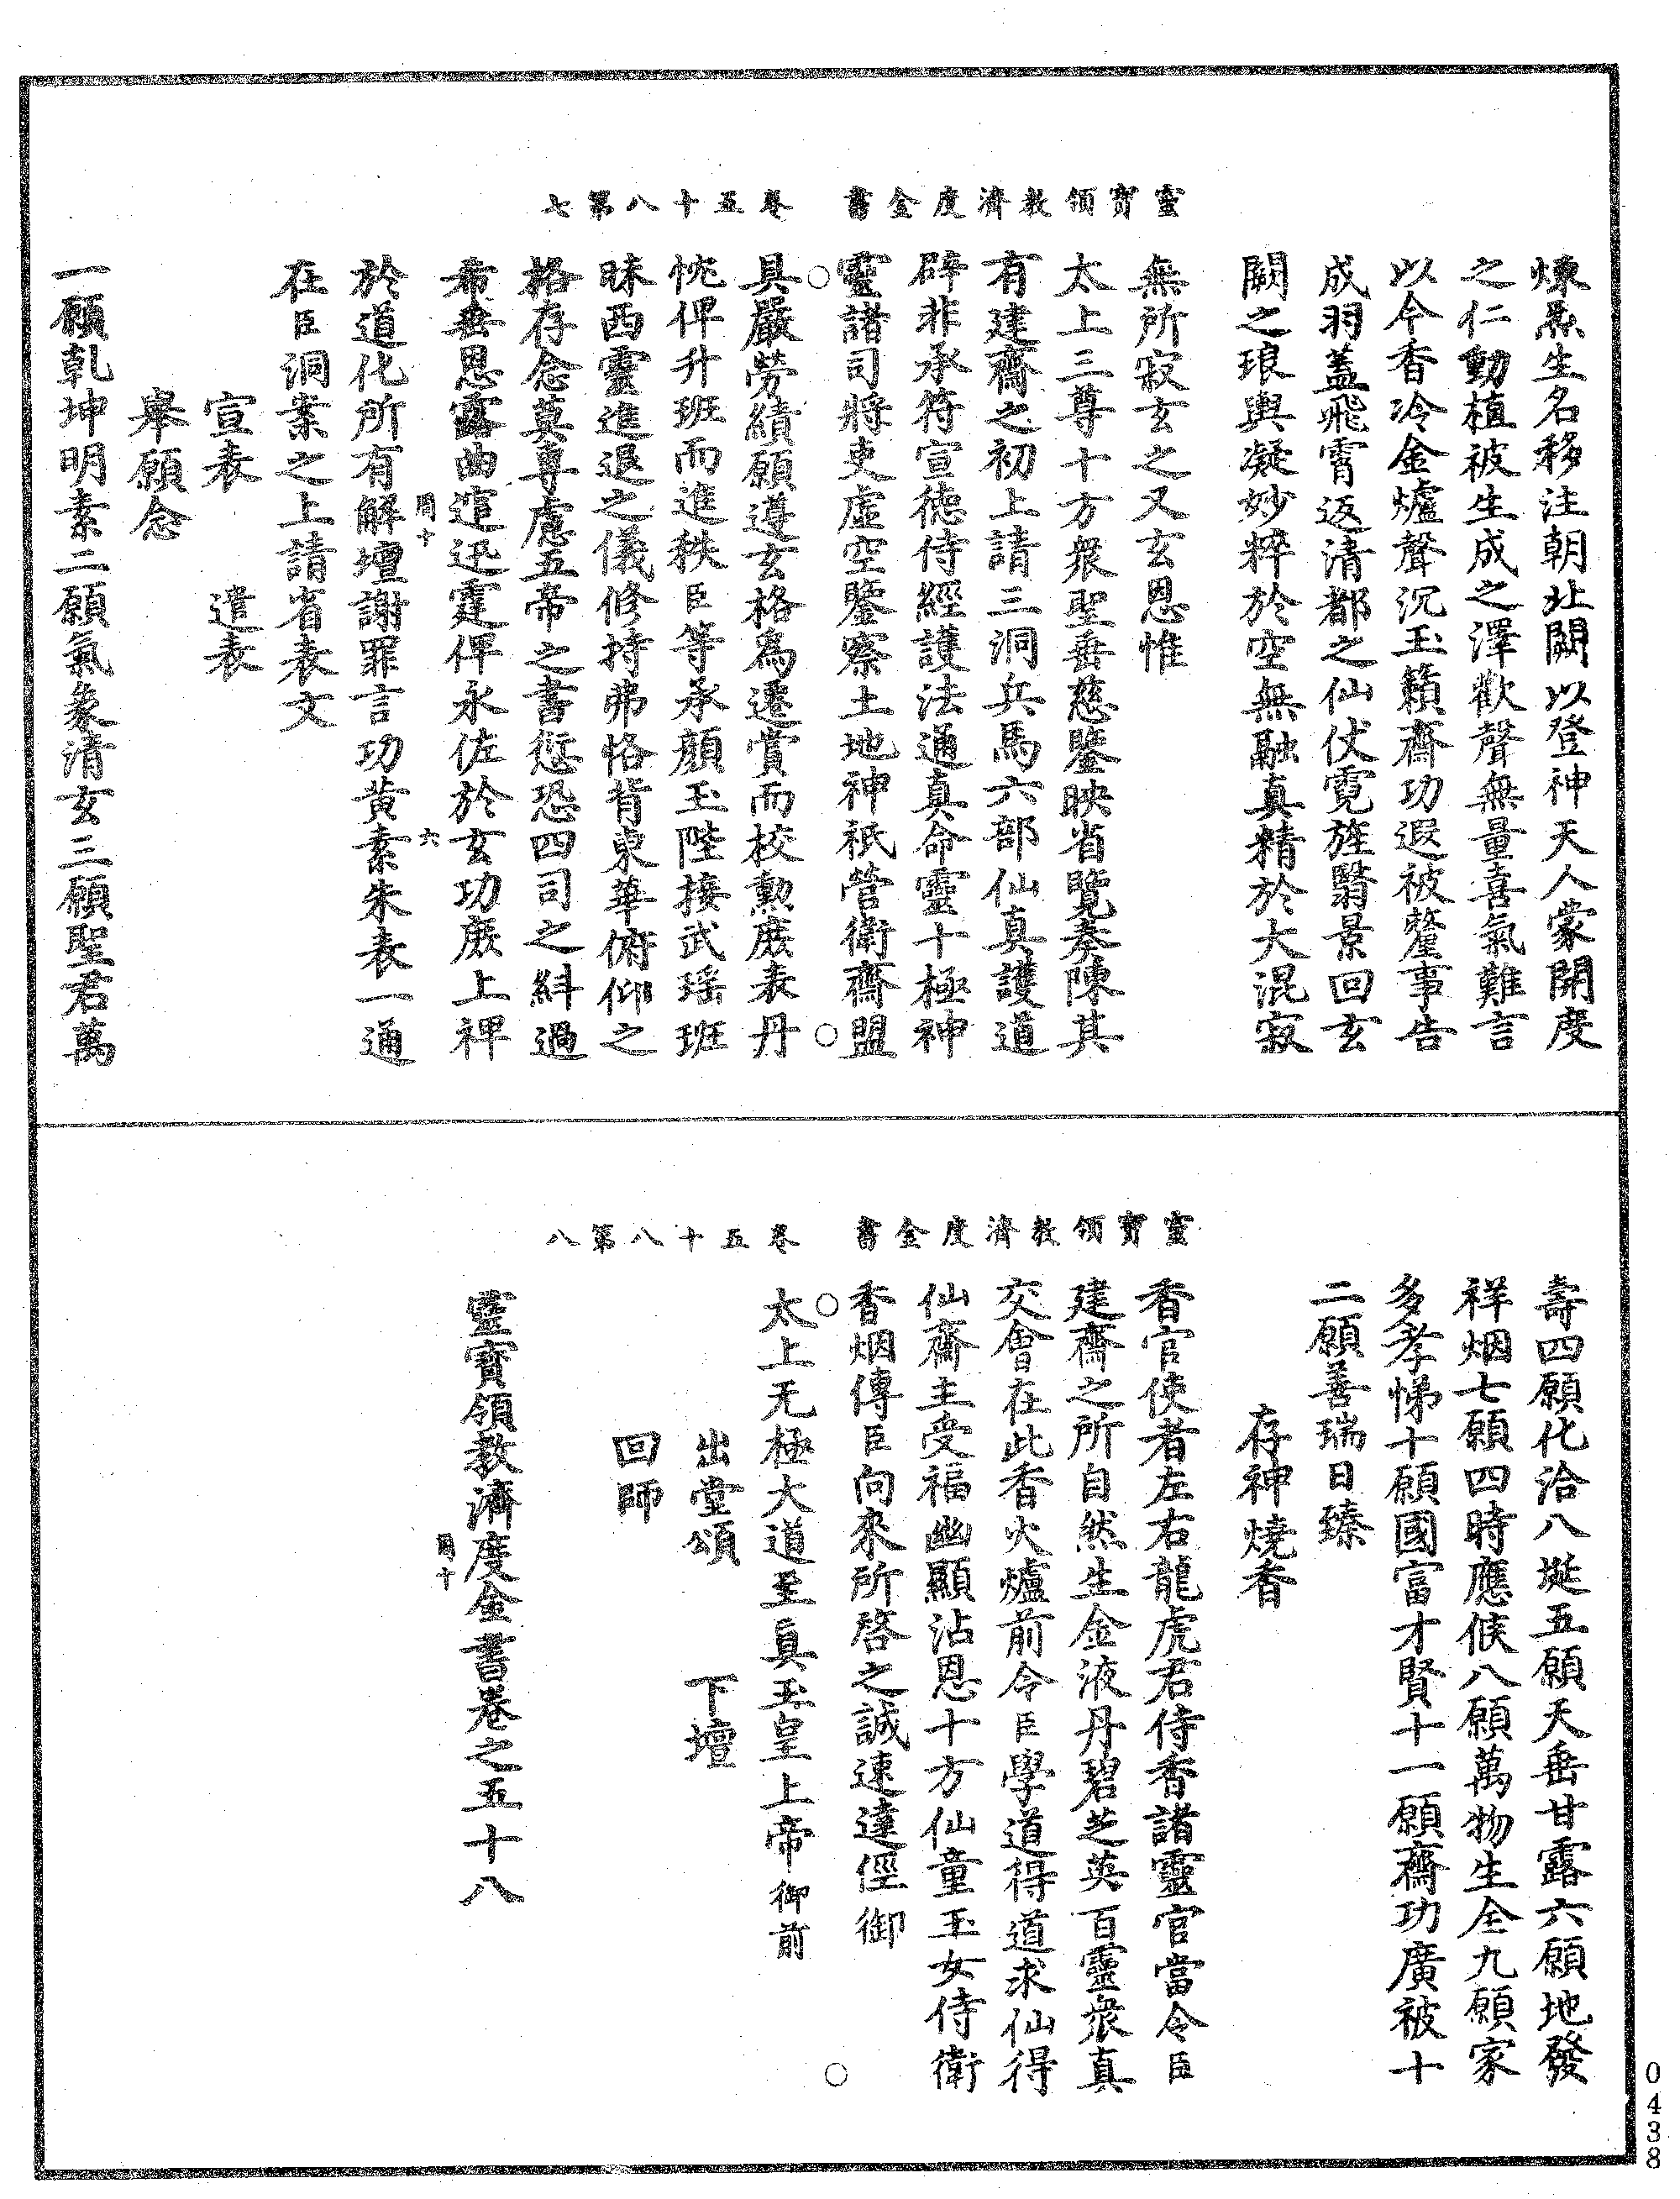 靈寶領教濟度金書　卷五十八第七
煉氣生名移注朝北闕以登神天人蒙開度
之仁動植被生成之澤歡聲無量喜氣難言
以今香冷金爐聲沉玉籟齋功遐被釐事告
成羽蓋飛霄返清都之仙仗霓旌翳景回玄
闕之琅輿凝妙粹於空無融真精於大混寂
無所寂玄之又玄恩惟
太上三尊十方衆聖垂慈鑒映省覽奏陳其
有建齋之初上請三洞兵馬六部仙真護道
辟非承符宣德侍經護法通真命靈十極神
靈諸司將吏虛空鑒察土地神祇營衛齋盟
具嚴勞績願遵玄格為遷賞而校勳庶表丹
忱俾升班而進秩臣等承顏玉陛接武瑶班
昧西靈進退之儀修持弗恪背東華俯仰之
格存念莫專慮五帝之書愆恐四司之糾過
希垂恩露曲逭迅霆俾永佐於玄功庶上裨
於道化所有解壇謝罪言功黃素朱表一通
在臣洞案之上請省表文
宣表　遣表
舉願念
一願乾坤明素二願氣象清玄三願聖君萬
周十
六
靈寶領教濟度金書　卷五十八第八
壽四願化洽八埏五願天垂甘露六願地發
祥烟七願四時應候八願萬物生全九願家
多孝悌十願國富才賢十一願齋功廣被十
二願善瑞日臻
存神燒香
香官使者左右龍虎君侍香諸靈官當令臣
建齋之所自然生金液丹碧芝英百靈衆真
交會在此香火爐前令臣學道得道求仙得
仙齋主受福幽顯沾恩十方仙童玉女侍衛
香烟傳臣向來所啓之誠速達徑御
太上无極大道至真玉皇上帝御前
出堂頌　下壇
回師
靈寶領教濟度金書卷之五十八
周十
0438